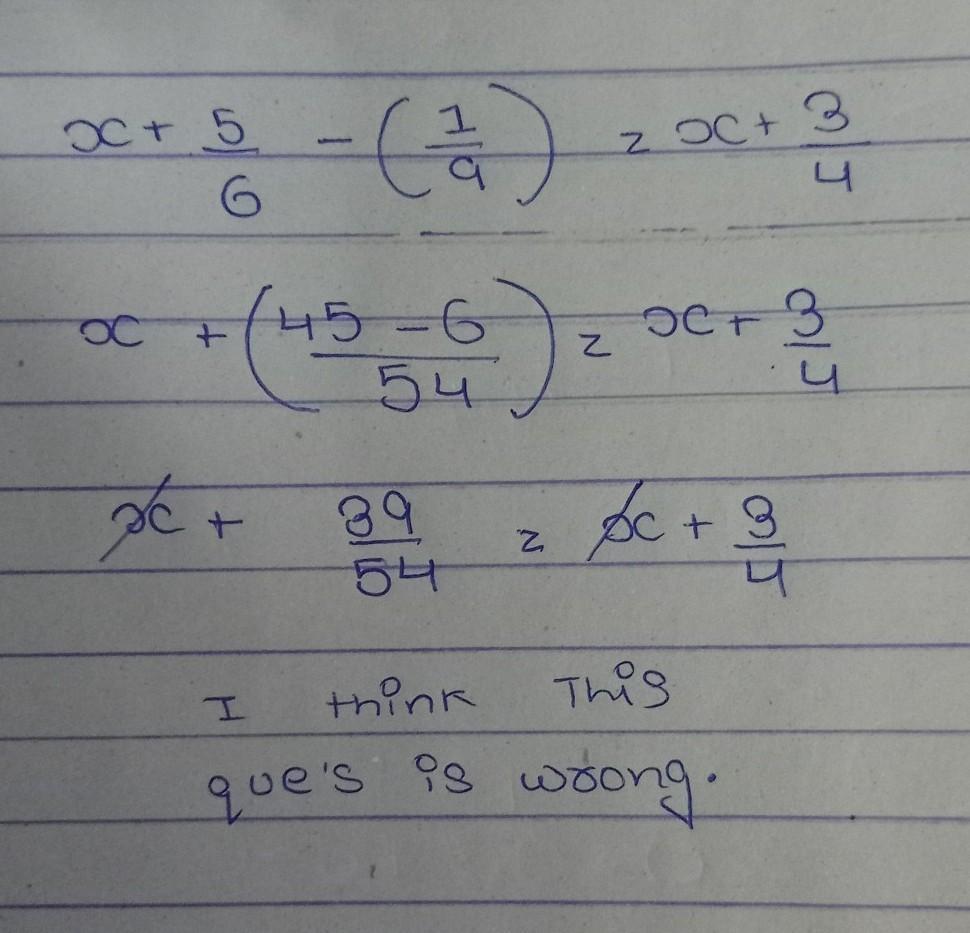 x + 5/6 - (1/9) = x + 3/4
x + (45 - 6 / 54) = x + 3/4
x + 39/54 = x + 3/4
I think This
que's is wrong.